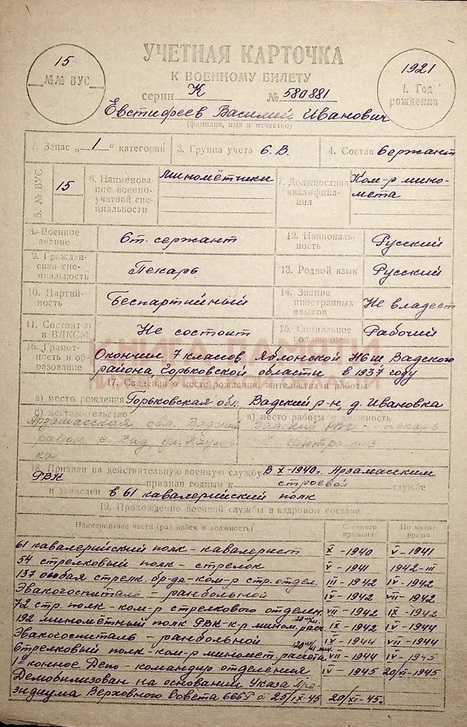 15
№№ ВУС
УЧЕТНАЯ КАРТОЧКА
К ВОЕННОМУ БИЛЕТУ
серии К № 580881
1921
1. Год рождения
Евстифеев Василий Иванович
(фамилия, имя и отчество)
2. Запас „1" категории
3. Группа учета С.В.
4. Состав Сержант
5. № ВУС
15
6. Наименование военно-учетной специальности
Минометчики
7. Должностная квалификация
Ком-р миномета
8. Военное звание
Ст. сержант
12. Национальность
Русский
9. Гражданская специальность
Пекарь
13. Родной язык
Русский
10. Партийность
Беспартийный
14. Знание иностранных языков
Не владеет
11. Состоит ли в ВЛКСМ
Не состоит
15. Социальное
Рабочий
КНИГА ПАМЯТИ
16. Грамотность и образование
Окончил 7 классов Яблонской Нсш Вадского
района Горьковской области в 1937 году
17. Сведения о месте рождения, жительства и работы
а) место рождения Горьковская обл. Вадский р-н, д. Ивановка
б) местожительство
в) место работы и должность
Арзамасская обл. Вадский
район, с. Вад ул.
18. Призван на действительную военную службу В X-1940. Арзамасским
РВК признан годным к строевой службе
и зачислен в 61 кавалерийский полк
19. Прохождение военной службы в кадровом составе
Наименование части (род войск и должность)
С какого времени
По какое время
61 кавалерийский полк - кавалерист X-1940 V-1941
54 стрелковый полк - стрелок V-1941 1942-III
137 особая стрелк. бр-да-ком-р стр. отдел. III-1942 IV-1942
Эвакогоспиталь - ранбольной IV-1942 VII-1942
72 стр. полк - ком-р стрелкового отделен. VII-1942 IX-1942
192 минометный полк РВК-к-р мином. расч. IX-1942 IV-1944
Эвакогоспиталь - ранбольной IV-1944 VII-1944
Стрелковый полк - ком-р миномет. расчета VII-1944 IV-1945
1е конное Депо - командир отделения IV-1945 20/XI-1945
Демобилизован на основании Указа Пре-
зидиума Верховного Совета СССР от 25/IX-45 20/XI-45.